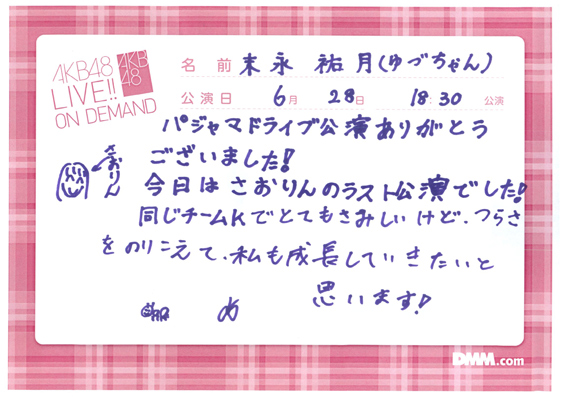 AKB48
LIVE!!
ON DEMAND
AKB
48
名前 末永 祐月(ゆづちゃん)
公演日 6月 28日 18:30 公演
パジャマドライブ公演ありがとう
ございました!
さおりん
今日はさおりんのラスト公演でした!
同じチームKでとてもさみしいけど、つらさ
をのりこえて、私も成長していきたいと
思います!
め
DMM.com